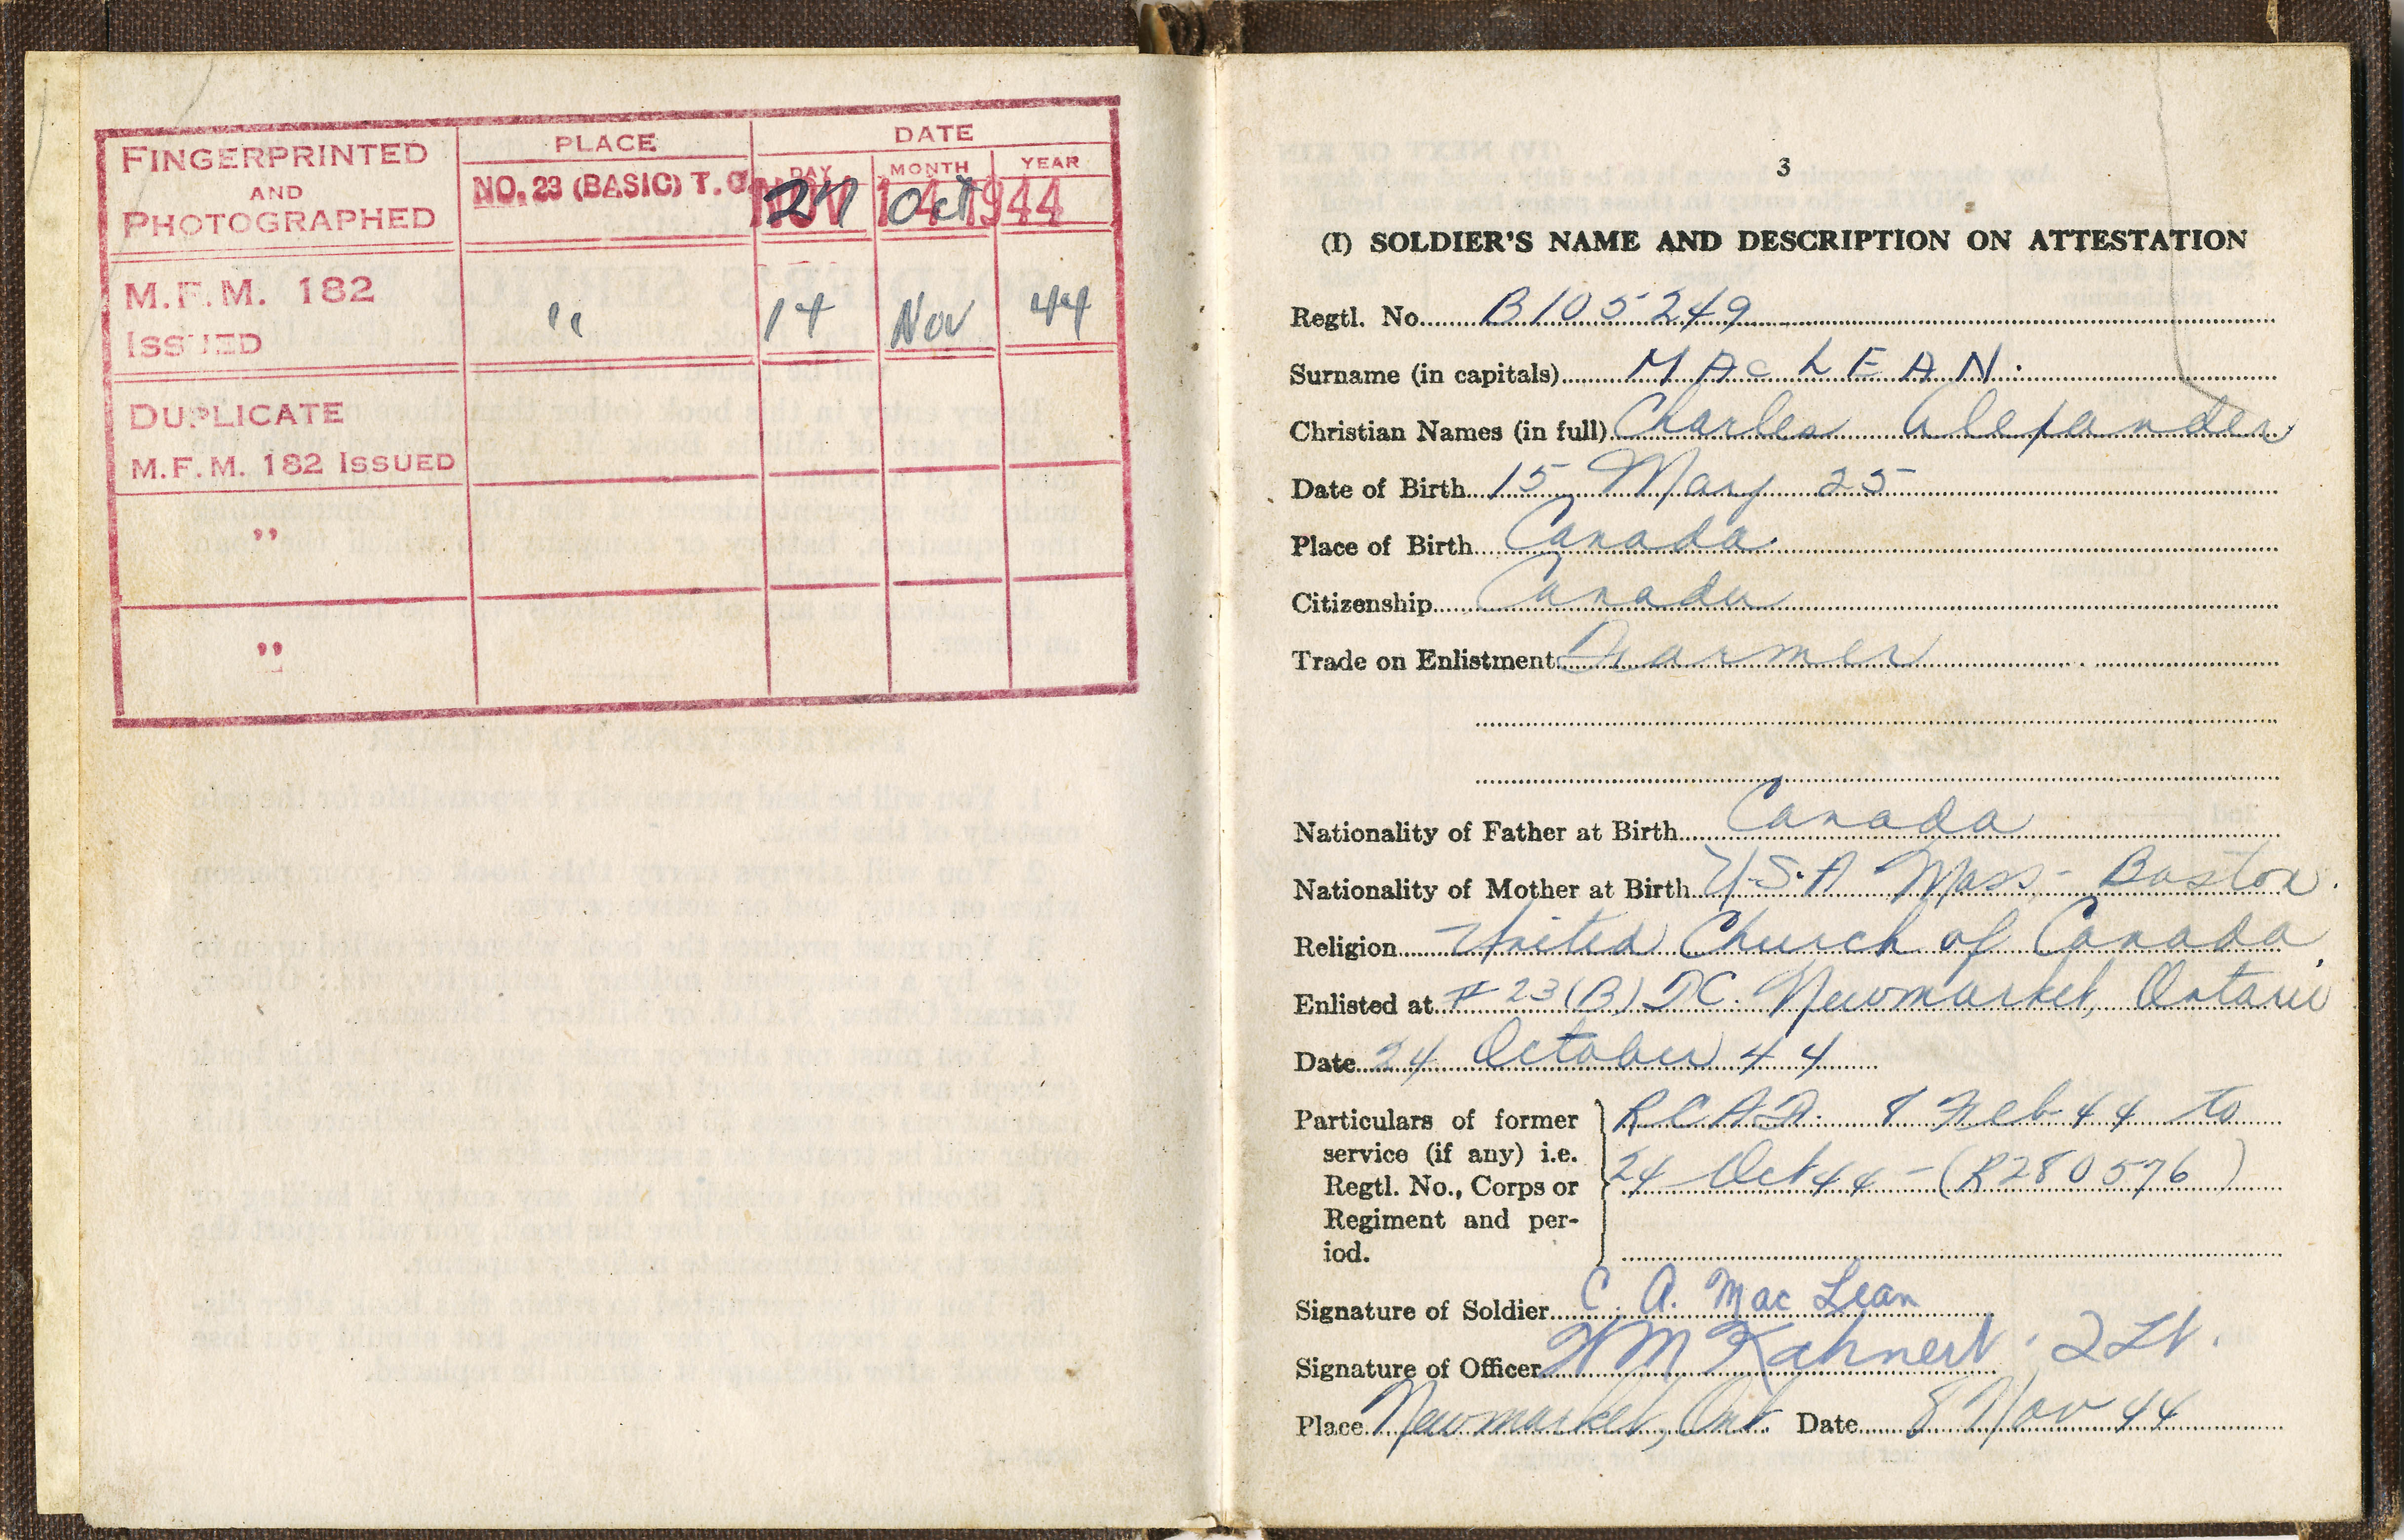 FINGERPRINTED
AND
PHOTOGRAPHED
PLACE
DATE
DAY MONTH YEAR
NO. 23 (BASIC) T. C.
NOV 14 1944
27 Oct
M.F.M. 182
ISSUED
" 14 Nov 44
DUPLICATE
M.F.M. 182 ISSUED
"
"
3
(I) SOLDIER'S NAME AND DESCRIPTION ON ATTESTATION
Regtl. No. B105249
Surname (in capitals) MACLEAN.
Christian Names (in full) Charles Alexander
Date of Birth 15 May 25
Place of Birth Canada
Citizenship Canada
Trade on Enlistment Farmer
Nationality of Father at Birth Canada
Nationality of Mother at Birth U.S.A Mass - Boston.
Religion United Church of Canada
Enlisted at #23(B) TC. Newmarket, Ontario
Date 24 October 44
Particulars of former
service (if any) i.e.
Regtl. No., Corps or
Regiment and per-
iod.
RCAF. 8 Feb 44 to
24 Oct 44 - (R280576)
Signature of Soldier C. A. Mac Lean
Signature of Officer Kahnert. 2Lt.
Place Newmarket, Ont. Date 8 Nov 44